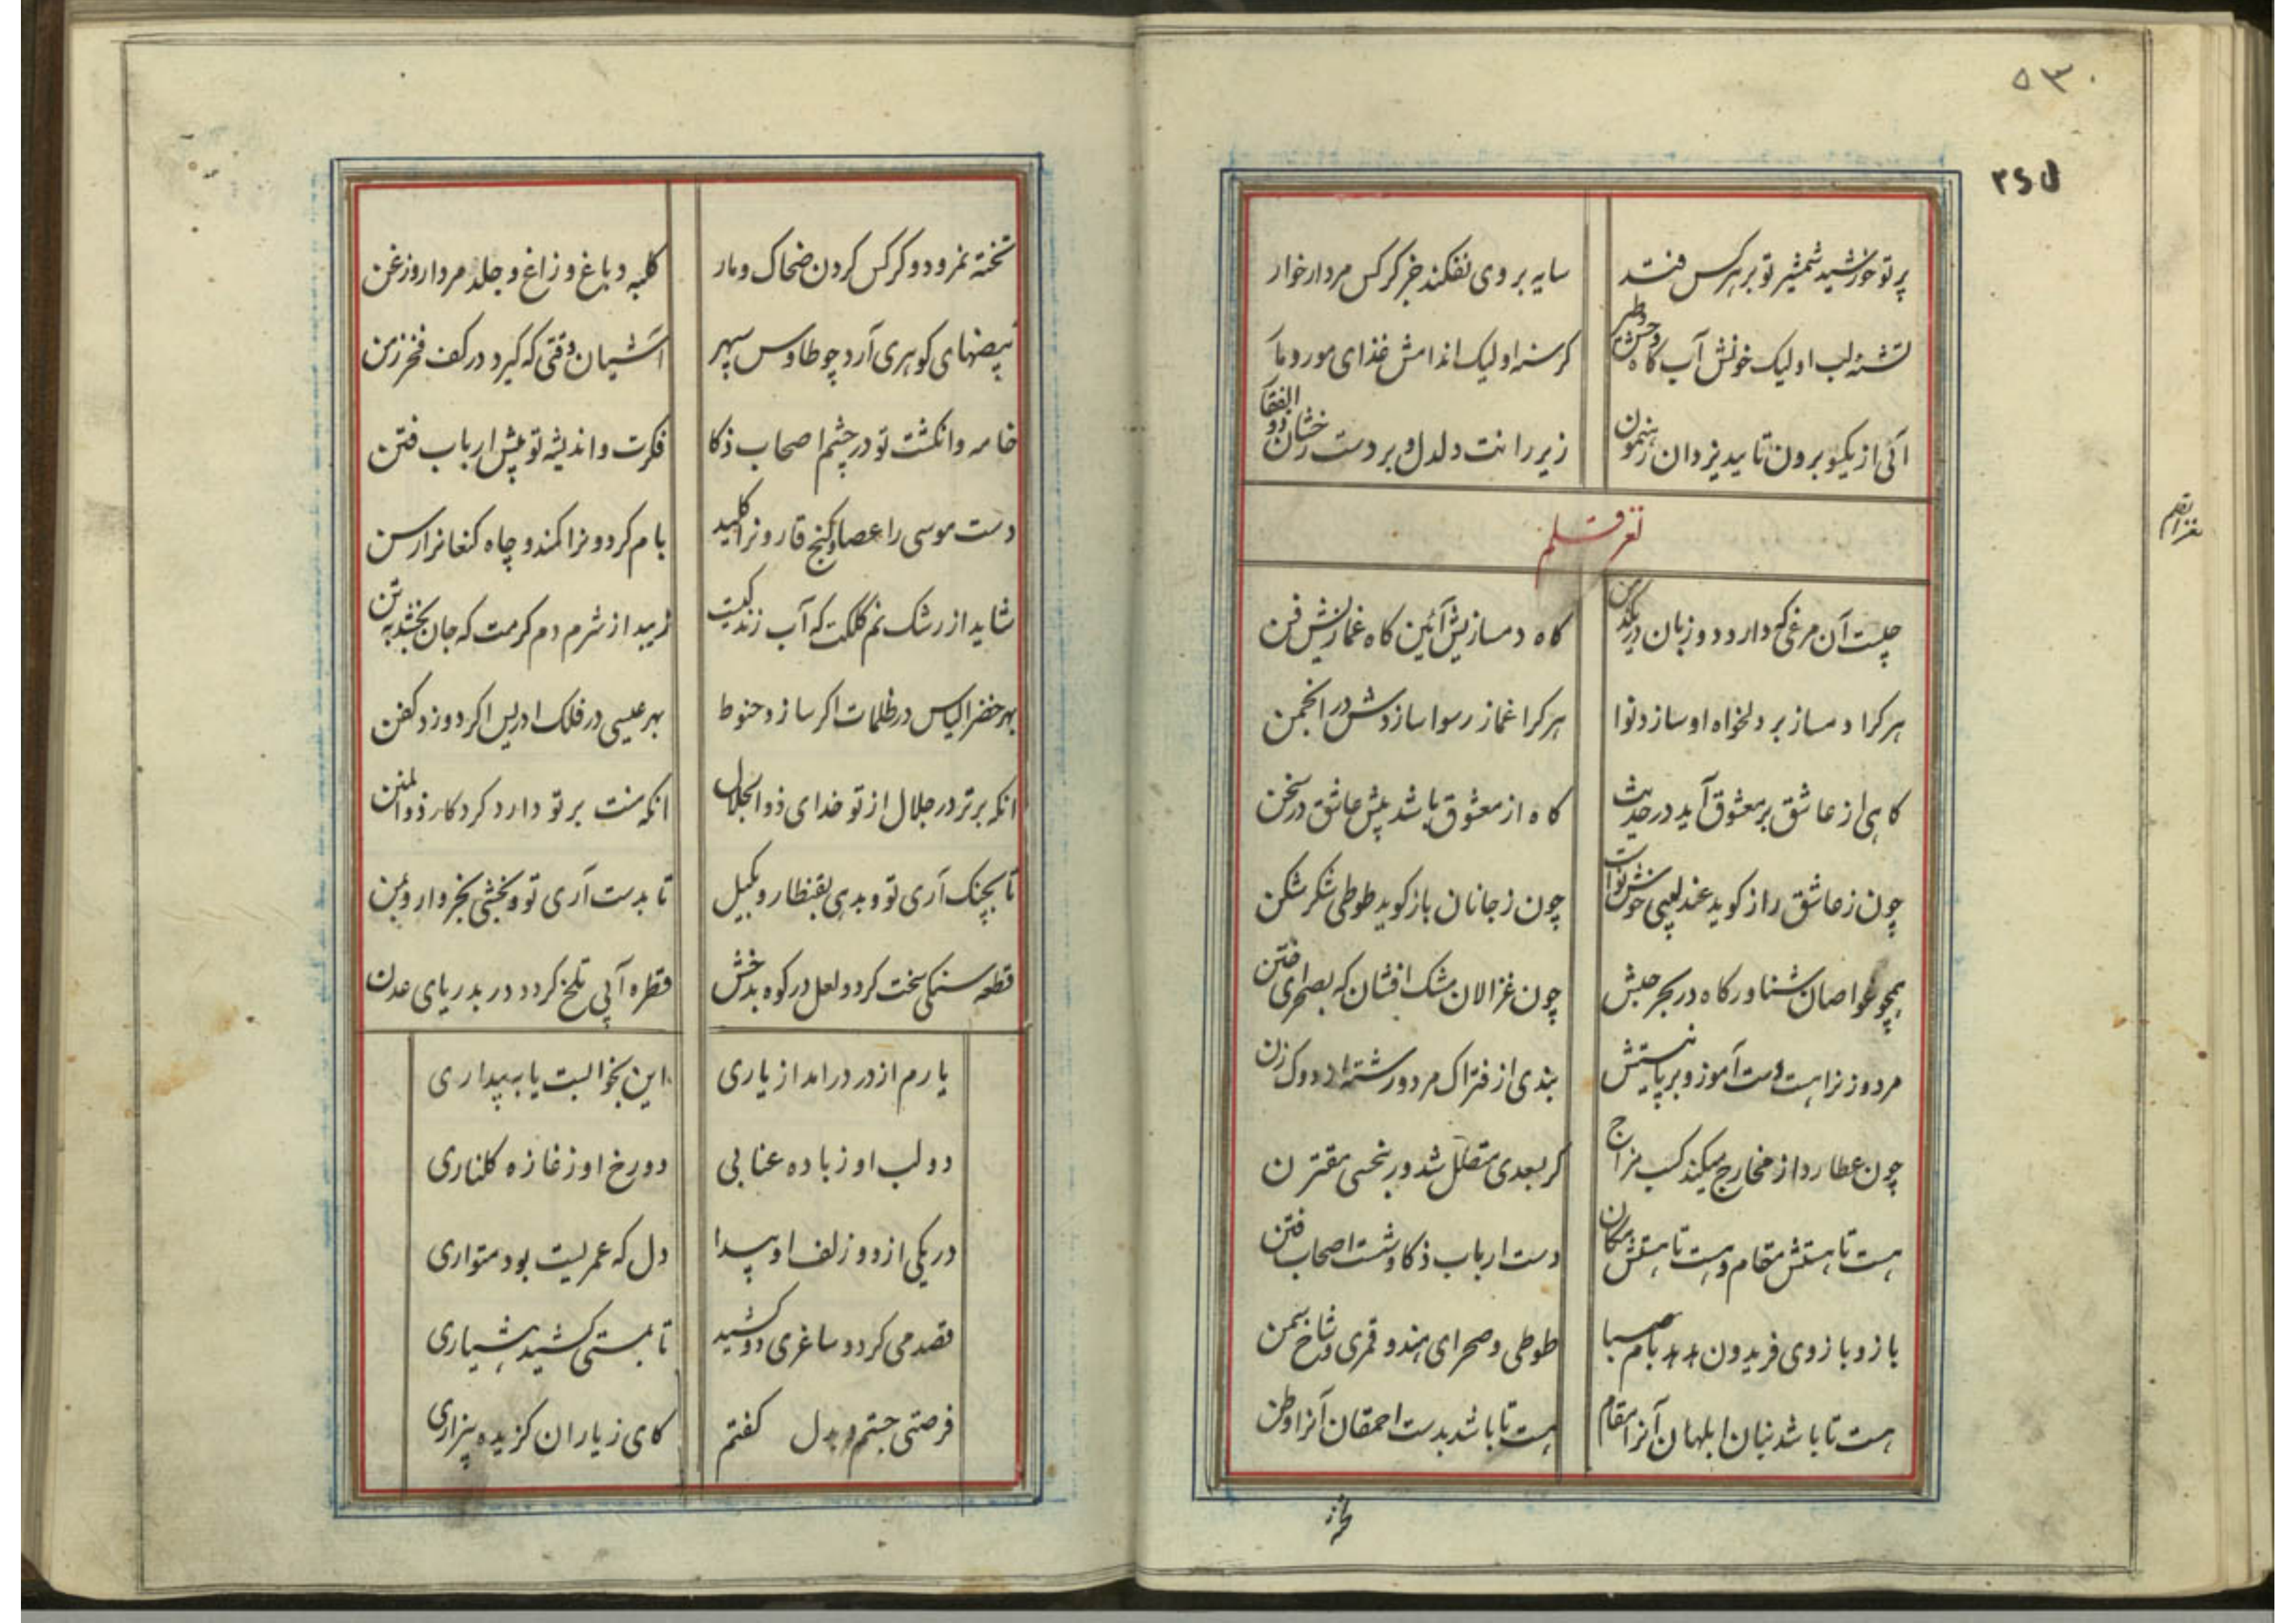 ۵۳۰
پرتو خورشید شمشیر تو بر هر کس فتد
سایه بر وی نفکند جز کرکس مردار خوار
تشنه لب او لیک خونش آب کاه وحش وطیر
کرسنه او لیک اندامش غذای مور و مار
آئی از یکسو برون تایید یزدان رهنمون
زیر رانت دلدل و بر دست رخشان ذوالفقار
لغز قلم
لغز قلم
چیست آن مرغی که دارد دو زبان در یکدهن
کاه دمسازیش آئین کاه غمازیش فن
هر کرا دمساز بر دلخواه او سازد نوا
هر کرا غماز رسوا سازدش در انجمن
کاهی از عاشق بر معشوق آید در حدیث
کاه از معشوق باشد پیش عاشق در سخن
چون ز عاشق راز کوید عندلیبی خوش نواست
چون ز جانان باز کوید طوطی شکر شکن
همچو غواصان شناور کاه در بحر حبش
چون غزالان مشک افشان که بصحرای ختن
مرد و زنرا هست دست آموز و بر پاییستش
بندی از فتراک مرد و رشته از دوک زن
چون عطارد از مخارج میکند کسب مزاج
کر بسعدی متصل شد ور بنحسی مقترن
هست تا هستش مقام و هست تا هستش مکان
دست ارباب ذکا و شست اصحاب فتن
باز و بازوی فریدون هد هد بام صبا
طوطی و صحرای هند و قمری و شاخ سمن
هست تا باشد بنان ابلهان آنرا مقام
هست تا باشد بدست احمقان آنرا وطن
تخته
تخته نمرود و کرکس کردن ضحاک و مار
کلبه دباغ و زاغ و جلد مردار و زغن
بیضهای کوهری آرد چو طاوس سپهر
آشیان وقتی که کیرد در کف فخر زمن
خامه و انکشت تو در چشم اصحاب ذکا
فکرت و اندیشه تو پیش ارباب فتن
دست موسی را عصا و کنج قارونرا کلید
بام کردونرا کمند و چاه کنعانرا رسن
شاید از رشک نم کلکت که آب زندکیست
زیبد از شرم دم کرمت که جان بخشد به تن
بهر خضر الیاس در ظلمات اکر سازد حنوط
بهر عیسی در فلک ادریس اکر دوزد کفن
انکه برتر در جلال از تو خدای ذوالجلال
انکه منت بر تو دارد کردکار ذوالمنن
تا بچنک آری تو و بدهی بقنطار و بکیل
تا بدست آری تو و بخشی بخروار و بمن
قطعه سنکی سخت کردد لعل در کوه بدخش
قطره آبی تلخ کردد در بدریای عدن
یارم از در درامد از یاری
این بخوابست یا به بیداری
دو لب او ز باده عنابی
دو رخ او ز غازه کلناری
در یکی از دو زلف او پیدا
دل که عمریست بود متواری
قصد می کرد و ساغری دو کشید
تا بمستی کشید هشیاری
فرصتی جستم و بدل کفتم
کای ز یاران کزیده بیزاری